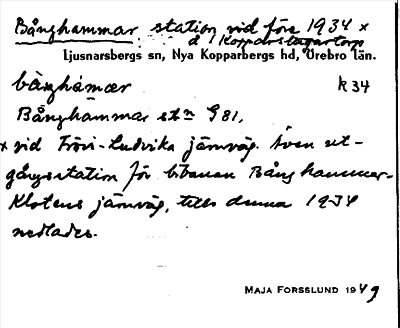 Bånghammar station vid före 1934 x
d 1 Kopparslagartorp
Ljusnarsbergs sn, Nya Kopparbergs hd, Örebro län.
bånghámær R34
Bånghammar stn G 81.
x vid Frövi-Ludvika järnväg. Även ut-
gångsstation för bibanan Bånghammar-
Klotens järnväg, tills denna 1934
nedlades.
MAJA FORSSLUND 1949